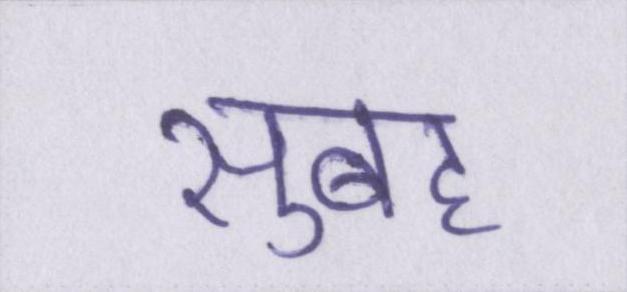 सुबह